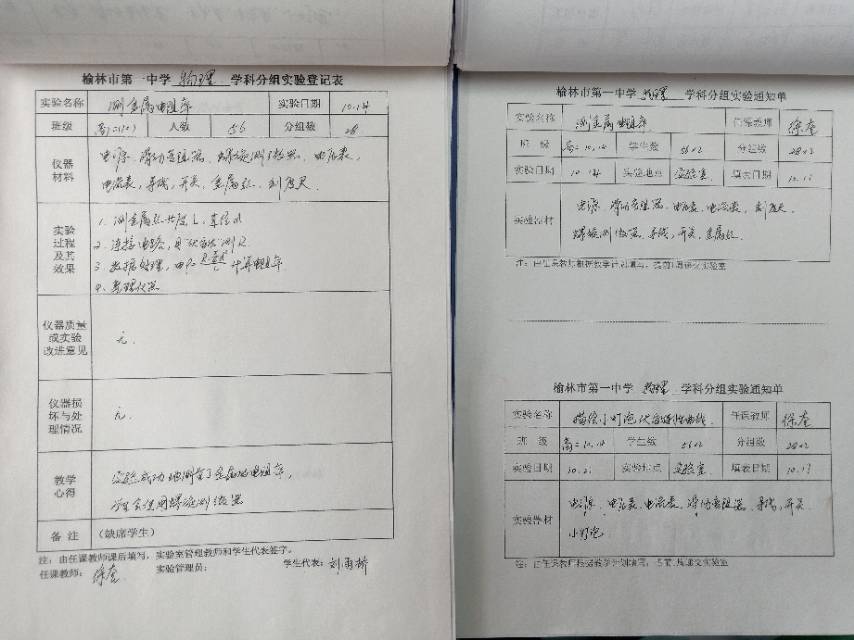 榆林市第一中学 物理 学科分组实验登记表
实验名称 测金属电阻率 实验日期 10.14
班级 高二(10) 人数 56 分组数 28
仪器材料 电源、滑动变阻器、螺旋测微器、电压表、
电流表、导线、开关、金属丝、刻度尺
实验过程及其效果 1. 测金属丝长度L,直径d
2. 连接电路,用伏安法测R
3. 数据处理,由 计算电阻率
4. 整理仪器
仪器质量或实验改进意见 无.
仪器损坏与处理情况 无.
教学心得 实验成功地测量了金属的电阻率,
学生会使用螺旋测微器
备注 (缺席学生)
注:由任课教师课后填写,实验室管理教师和学生代表签字。
任课教师: 徐奎 实验管理员: 学生代表:刘雨桥
榆林市第一中学 物理 学科分组实验通知单
实验名称 测金属电阻率 任课教师 徐奎
班级 高二10,14 学生数 56×2 分组数 28×2
实验日期 10.14 实验地点 实验室 填表日期 10.12
实验器材 电源、滑动变阻器、电压表、电流表、刻度尺、
螺旋测微器、导线、开关、金属丝.
注:由任课教师根据教学计划填写,提前1周递交实验室
榆林市第一中学 物理 学科分组实验通知单
实验名称 描绘小灯泡伏安特性曲线 任课教师 徐奎
班级 高二10,14 学生数 56×2 分组数 28×2
实验日期 10.21 实验地点 实验室 填表日期 10.17
实验器材 电源、电压表、电流表、滑动变阻器、导线、开关
小灯泡
注:由任课教师根据教学计划填写,提前1周递交实验室